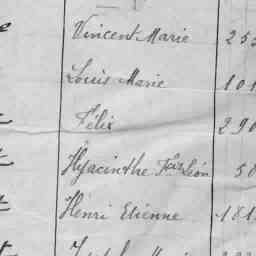 Vincent Marie 253
Louis Marie 101
Félix 290
Hyacinthe Fois Léon 50
Henri Etienne 181